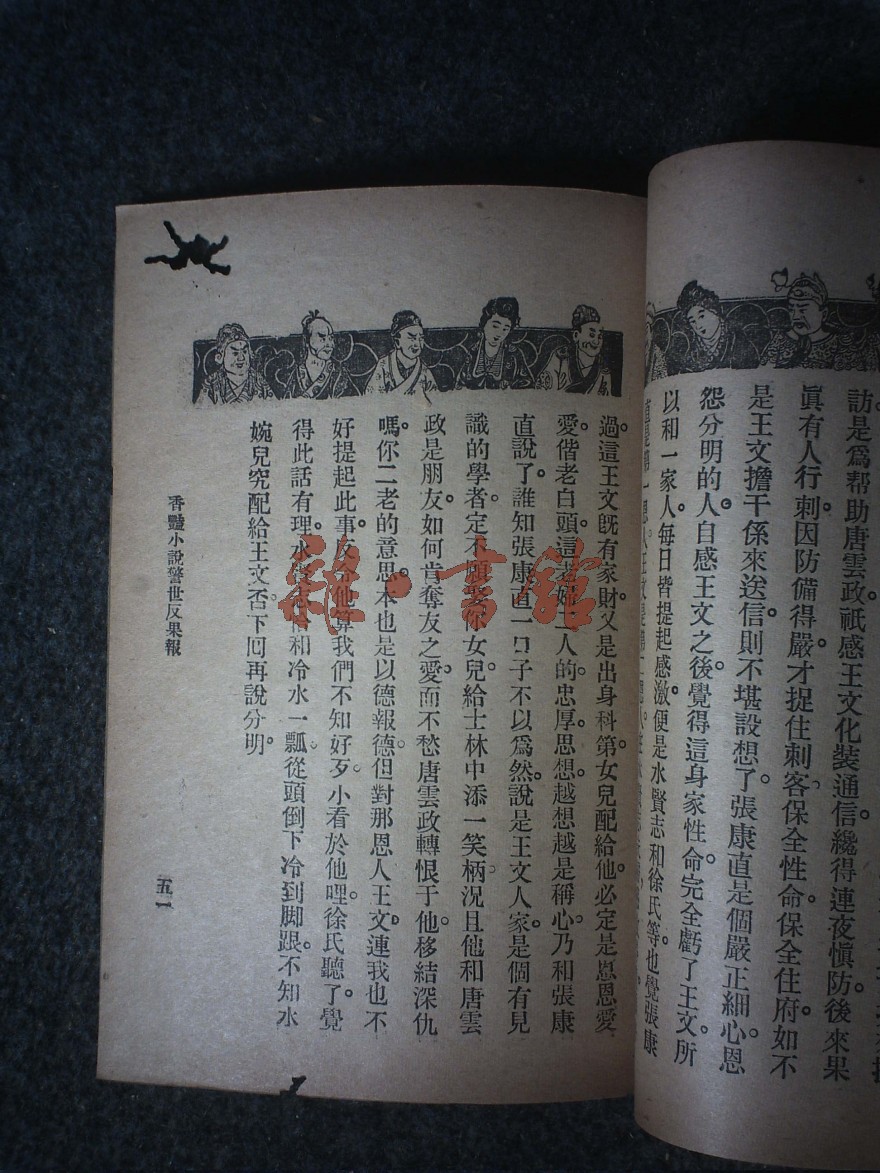 訪是爲帮助唐雲政祇感王文化装通信纔得連夜愼防。後來果
眞有人行刺因防備得嚴才捉住刺客保全性命保全住府如不
是王文擔干係來送信則不堪設想了。張康直是個嚴正細心恩
怨分明的人。自感王文之後。覺得這身家性命。完全虧了王文。所
以和一家人。每日皆提起感激。便是水賢志和徐氏等。也覺張康
過。這王文旣有家財。又是出身科第。女兒配給他。必定是恩恩愛
愛。偕老白頭。這老媼二人的忠厚思想。越想越是稱心。乃和張康
直說了。誰知張康直一口子不以爲然。說是王文人家。是個有見
識的學者。定不願娶你女兒。給士林中添一笑柄。況且他和唐雲
政是朋友。如何肯奪友之愛。而不愁唐雲政轉恨于他。移結深仇
嗎。你二老的意思。本也是以德報德。但對那恩人王文。連我也不
好提起此事。反令他算我們不知好歹。小看於他哩。徐氏聽了。覺
得此話有理。水賢志倍和冷水一瓢。從頭倒下。冷到脚跟。不知水
婉兒究配給王文否。下囘再說分明。
香豔小說警世反果報
五一
雜·書館